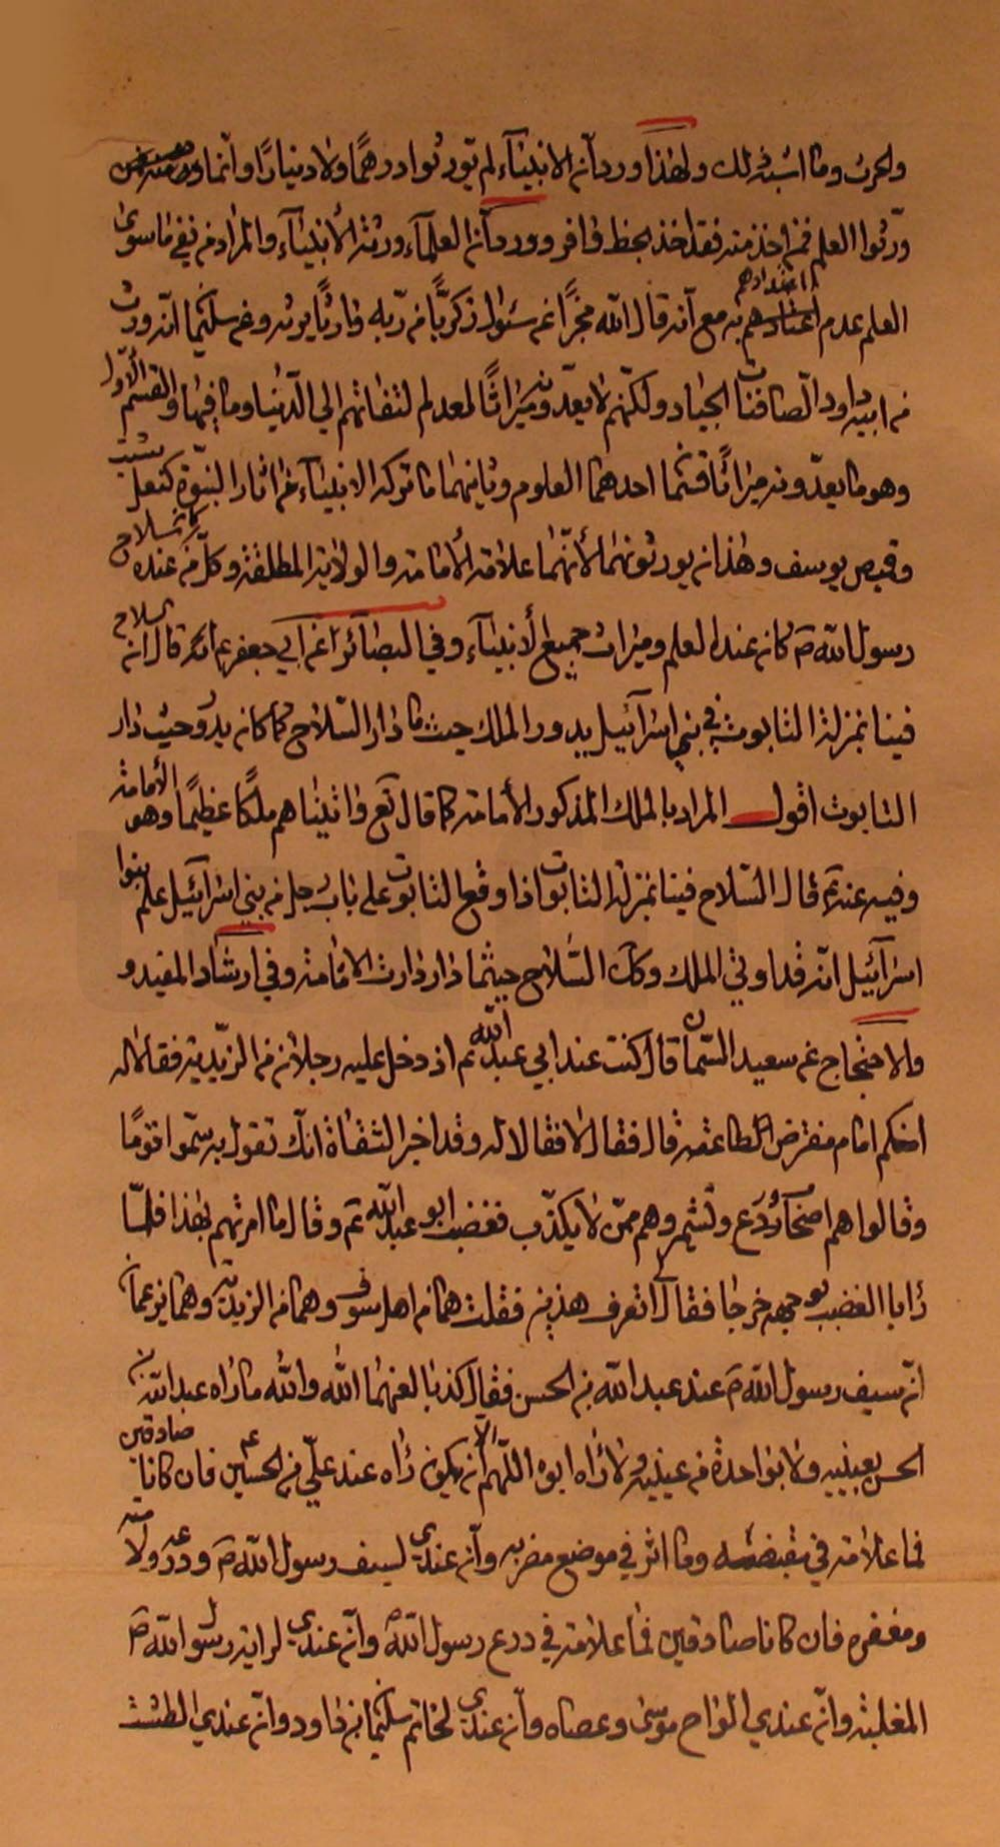 والحرث وما اشبه ذلك ولهذا ورد ان الانبيآء لم يورثوا درهمًا ولا دينارًا وانما
ورّثوا العلم فمن اخذ منه فقد اخذ بحظ وافر وورد ان العلمآء ورثة الأنبيآء والمراد من نفي ما سوى
العلم عدم اعتدادهم به مع انه قال الله مخبرًا عن سئوال زكريّا من ربّه وارثًا يرثه وعن سليمان انه ورث
من ابيه داود الصافنات الجياد ولكنّهم لا يعدّونه ميراثًا لعدم التفاتهم الي الدنيا وما فيها والقسم الأوّل
وهو ما يعدّونه ميراثًا قسمان احدهما العلوم وثانيهما ما تركه الانبيآء من اثار النبوّة كنعل شيث
وقميص يوسف وهذان يورثونهما لأنّهما علامة الأمامة والولاية المطلقة وكلّ من عنده سلاح
رسول الله ص كان عنده العلم وميراث جميع الأنبيآء وفي البصآئر عن ابي جعفر ع انّه قال ان السلاح
فينا بمنزلة التابوت في بني اسرآئيل يدور الملك حيث ما دار السّلاح كما كان يدور حيث دار
التابوت اقول المراد بالملك المذكور الأمامة كما قال تع واتيناهم ملكًا عظيمًا وهو الأمامة
وفيه عنه ع قال السّلاح فينا بمنزلة التابوت اذا وقع التابوت على باب رجل من بني اسرآئيل علم بنوا
اسرآئيل انه قد اوتي الملك وكك السّلاح حيثما دار دارت الامامة وفي ارشاد المفيد و
والاحتجاج عن سعيد السّمان قال كنت عند ابي عبد الله ع اذ دخل عليه رجلان من الزيديّة فقالا له
افيكم امام مفترض الطاعة قال فقال لا فقالا له وقد اخبر الثقاة انك تقول به سمّوا قومًا
وقالوا هم اصحاب ورع وتشمير وهم ممّن لا يكذّب فغضب ابو عبد الله ع وقال ما امرتهم بهذا فلمّا
رايا الغضب بوجهه خرجا فقال أتعرف هذين فقلت هما من اهل سوقنا وهما من الزيديّة وهما يزعمان
ان سيف رسول الله ص عند عبد الله بن الحسن فقال كذبا لعنهما الله والله ما راه عبد الله بن
الحسن بعينيه ولا بواحدة من عينيه ولا راه ابوه اللّهم الا ان يكون راه عند علّي بن الحسين ع فان كانا صادقين
فما علامة في مقبضه وما اثر في موضع مضربه وان عندي لسيف رسول الله ص ودرعه ولامته
ومغفره فان كانا صادقين فما علامة في درع رسول الله ص وان عندي لراية رسول الله ص
المغلبة وان عندي الواح موسى وعصاه وان عندي لخاتم سليمان بن داود وان عندي الطشت